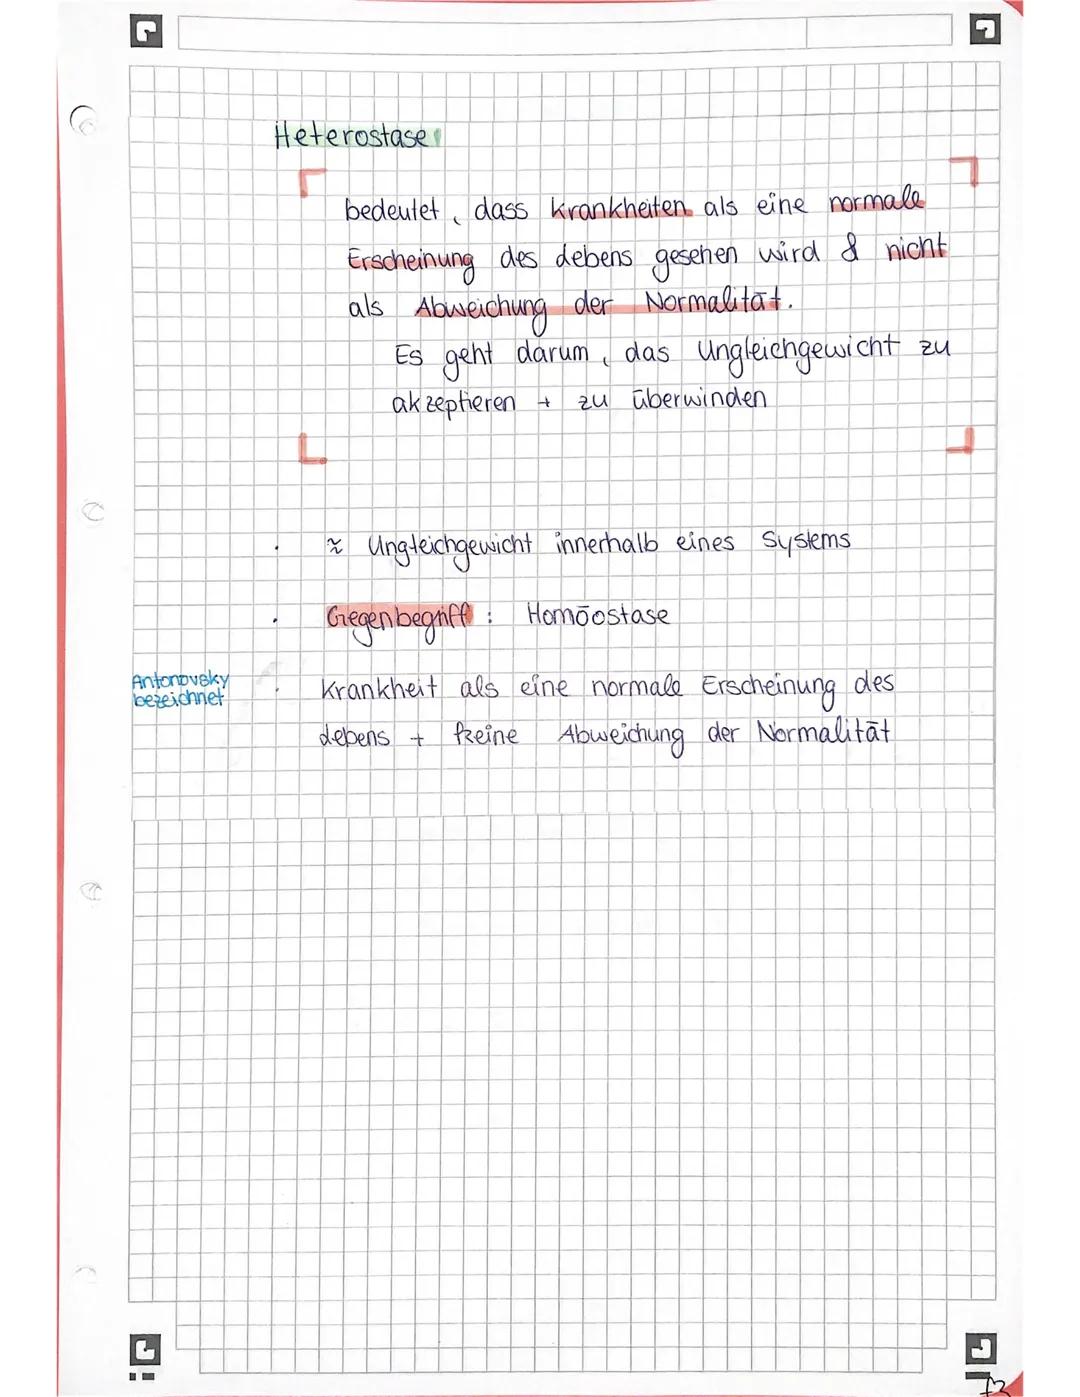 Heterostase
bedeutet, dass Krankheiten als eine normale
Erscheinung des Lebens gesehen wird & nicht
als Abweichung der Normalität.
Es geht darum, das Ungleichgewicht zu
akzeptieren + zu überwinden
· ≈ Ungleichgewicht innerhalb eines Systems
· Gegenbegriff : Homöostase
Antonovsky
bezeichnet
· Krankheit als eine normale Erscheinung des
Lebens + keine Abweichung der Normalität
12